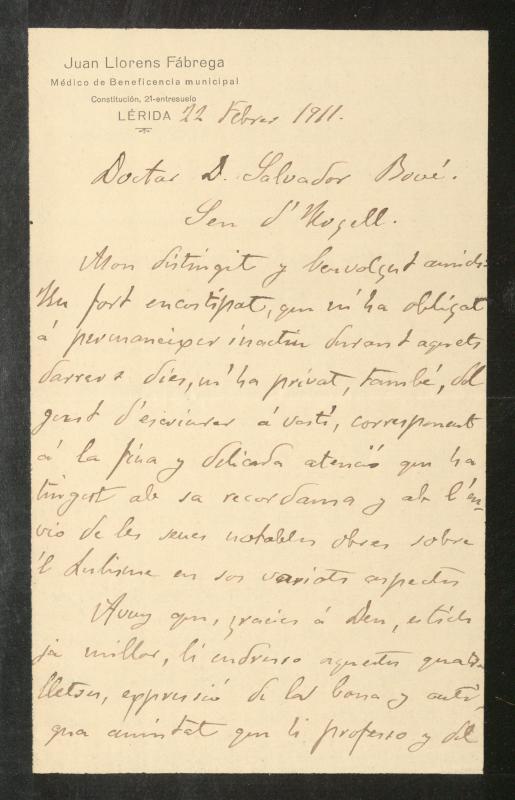 Juan Llorens Fábrega
Médico de Beneficencia municipal
Constitución, 21-entresuelo
LÉRIDA 22 Febrer 1911.
Doctor D. Salvador Bové.
Seu d'Urgell.
Mon distingit y benvolgut amich:
Un fort encostipat, que m'ha obligat
á permaneixer inactiu durant aquets
darrers dies, m'ha privat, també, del
gust d'escriurer á vosté, corresponent
á la fina y delicada atenció que ha
tingut ab sa recordansa y ab l'en-
vio de les seues notables obres sobre
'l Lulisme en sos variats aspectes
Avuy que, gracies á Deu, estich
ja millor, li endresso aquestes quatre
lletres, expressió de la bona y anti-
gua amistat que li professo y del